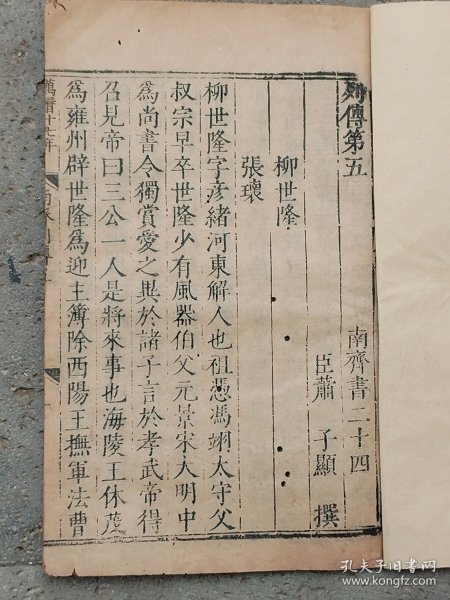 列傳第五
南齊書二十四
臣蕭子顯撰
柳世隆
張瓌
柳世隆字彥緒河東解人也祖憑馮翊太守父
叔宗早卒世隆少有風器伯父元景宋大明中
為尚書令獨賞愛之異於諸子言於孝武帝得
召見帝曰三公一人是將來事也海陵王休茂
為雍州辟世隆為迎主簿除西陽王撫軍法曹
萬曆十七年
孔夫子旧书网
www.kongfz.com